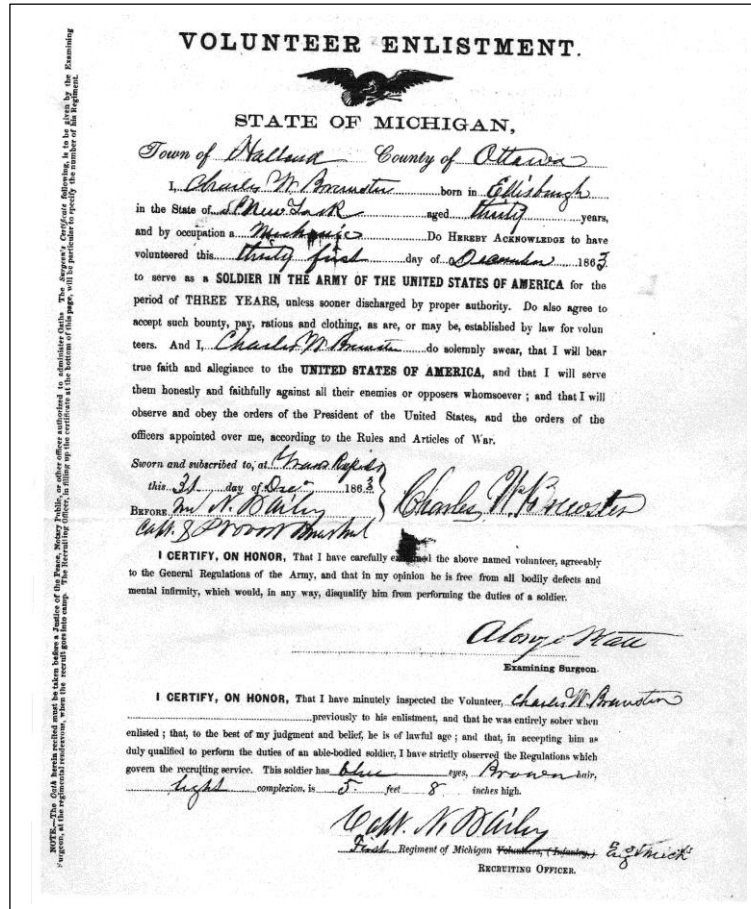 VOLUNTEER ENLISTMENT.
STATE OF MICHIGAN,
Town of Holland County of Ottawa
I, Charles W. Brewster born in Ellisburgh
in the State of New York aged thirty years,
and by occupation a Mechanic Do HEREBY ACKNOWLEDGE to have
volunteered this thirty first day of December 1863
to serve as a SOLDIER IN THE ARMY OF THE UNITED STATES OF AMERICA for the
period of THREE YEARS, unless sooner discharged by proper authority. Do also agree to
accept such bounty, pay, rations and clothing, as are, or may be, established by law for volun
teers. And I, Charles W. Brewster do solemnly swear, that I will bear
true faith and allegiance to the UNITED STATES OF AMERICA, and that I will serve
them honestly and faithfully against all their enemies or opposers whomsoever; and that I will
observe and obey the orders of the President of the United States, and the orders of the
officers appointed over me, according to the Rules and Articles of War.
Sworn and subscribed to, at Grand Rapids
this 31 day of Dec 1863
BEFORE N. Baily
Capt. & Provost Marshal
Charles W. Brewster
I CERTIFY, ON HONOR, That I have carefully the above named volunteer, agreeably
to the General Regulations of the Army, and that in my opinion he is free from all bodily defects and
mental infirmity, which would, in any way, disqualify him from performing the duties of a soldier.
Alonzo
Examining Surgeon.
I CERTIFY, ON HONOR, That I have minutely inspected the Volunteer, Charles W. Brewster
previously to his enlistment, and that he was entirely sober when
enlisted; that, to the best of my judgment and belief, he is of lawful age; and that, in accepting him as
duly qualified to perform the duties of an able-bodied soldier, I have strictly observed the Regulations which
govern the recruiting service. This soldier has blue eyes, Brown hair,
light complexion, is 5 feet 8 inches high.
Capt. N. Baily
First Regiment of Michigan Volunteers, (Infantry,) Eng & Mich
RECRUITING OFFICER.
NOTE.—The Oath herein recited must be taken before a Justice of the Peace, Notary Public, or other officer authorized to administer Oaths. The Surgeon's Certificate following, is to be given by the Examining
Surgeon, at the regimental rendezvous, when the recruit goes into camp. The Recruiting Officer, in filling up the certificate at the bottom of this page, will be particular to specify the number of his Regiment.